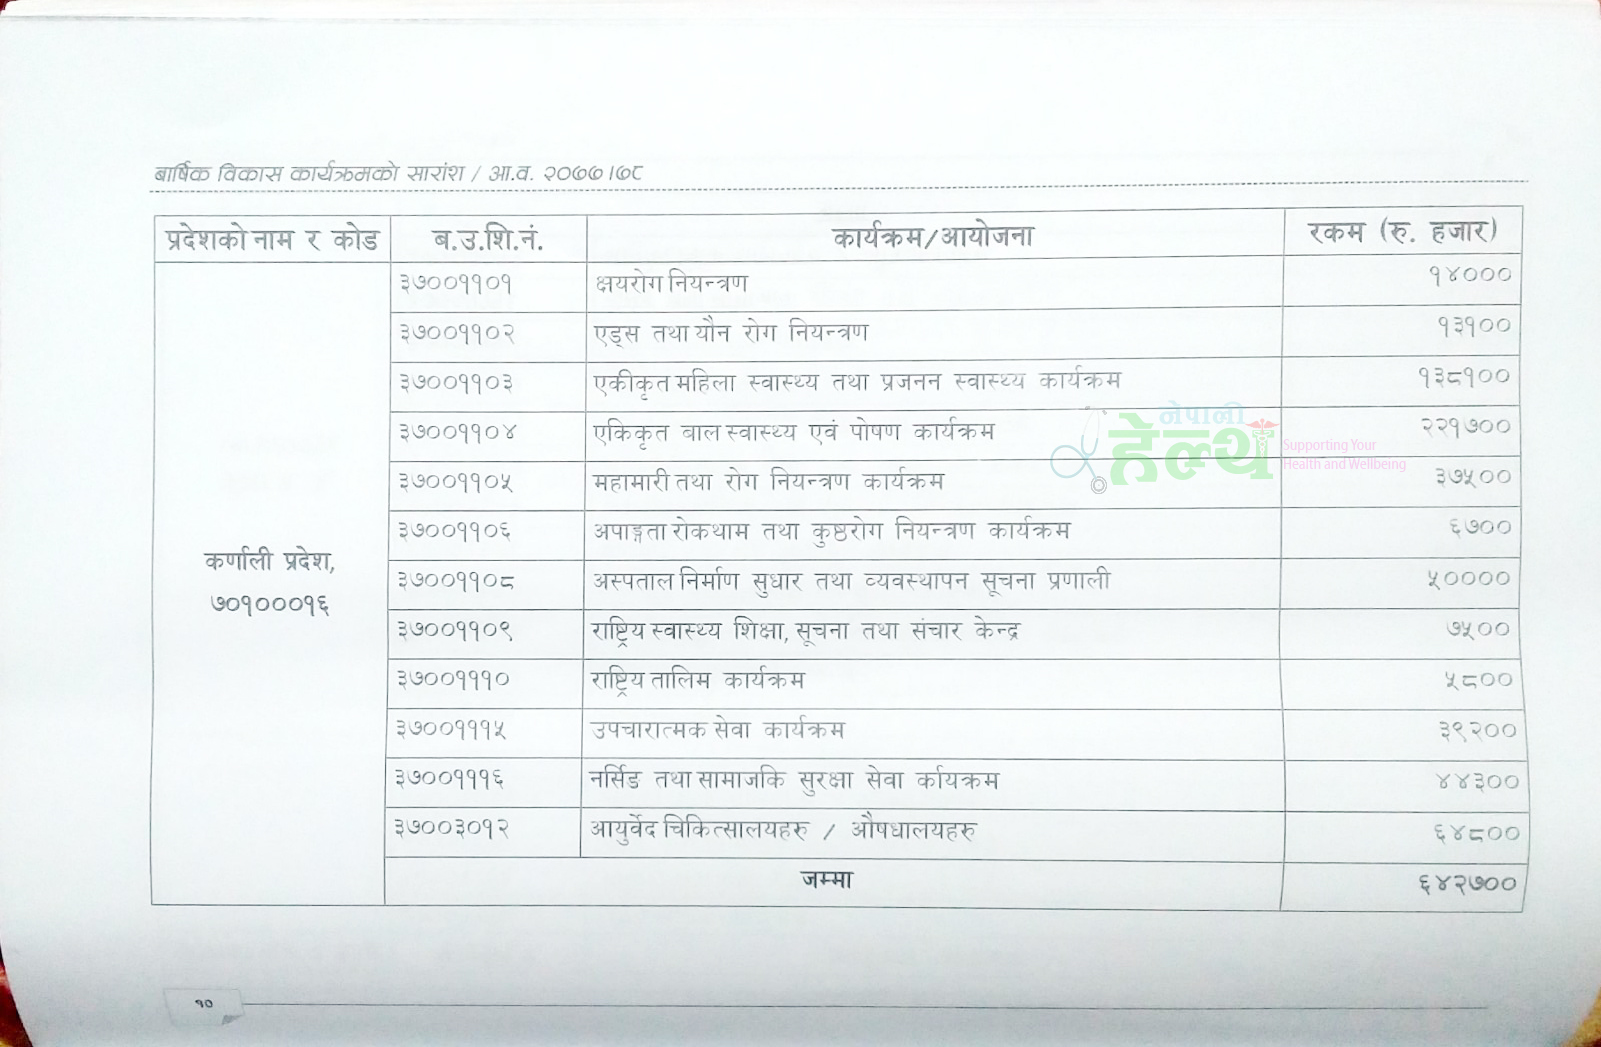 बार्षिक विकास कार्यक्रमको सारांश / आ.व. २०७७।७८
प्रदेशको नाम र कोड ब.उ.शि.नं. कार्यक्रम/आयोजना रकम (रु. हजार)
३७००११०१ क्षयरोग नियन्त्रण १४०००
३७००११०२ एड्स तथा यौन रोग नियन्त्रण १३१००
३७००११०३ एकीकृत महिला स्वास्थ्य तथा प्रजनन स्वास्थ्य कार्यक्रम १३८१००
३७००११०४ एकिकृत बाल स्वास्थ्य एवं पोषण कार्यक्रम २२१७००
३७००११०५ महामारी तथा रोग नियन्त्रण कार्यक्रम ३७५००
३७००११०६ अपाङ्गता रोकथाम तथा कुष्ठरोग नियन्त्रण कार्यक्रम ६७००
कर्णाली प्रदेश,
७०१०००१६
३७००११०८ अस्पताल निर्माण सुधार तथा व्यवस्थापन सूचना प्रणाली ५००००
३७००११०९ राष्ट्रिय स्वास्थ्य शिक्षा, सूचना तथा संचार केन्द्र ७५००
३७००१११० राष्ट्रिय तालिम कार्यक्रम ५८००
३७००१११५ उपचारात्मक सेवा कार्यक्रम ३९२००
३७००१११६ नर्सिङ तथा सामाजकि सुरक्षा सेवा र्कायक्रम ४४३००
३७००३०१२ आयुर्वेद चिकित्सालयहरु / औषधालयहरु ६४८००
जम्मा ६४२७००
नेपाली
हेल्थ
Supporting Your
Health and Wellbeing
१०